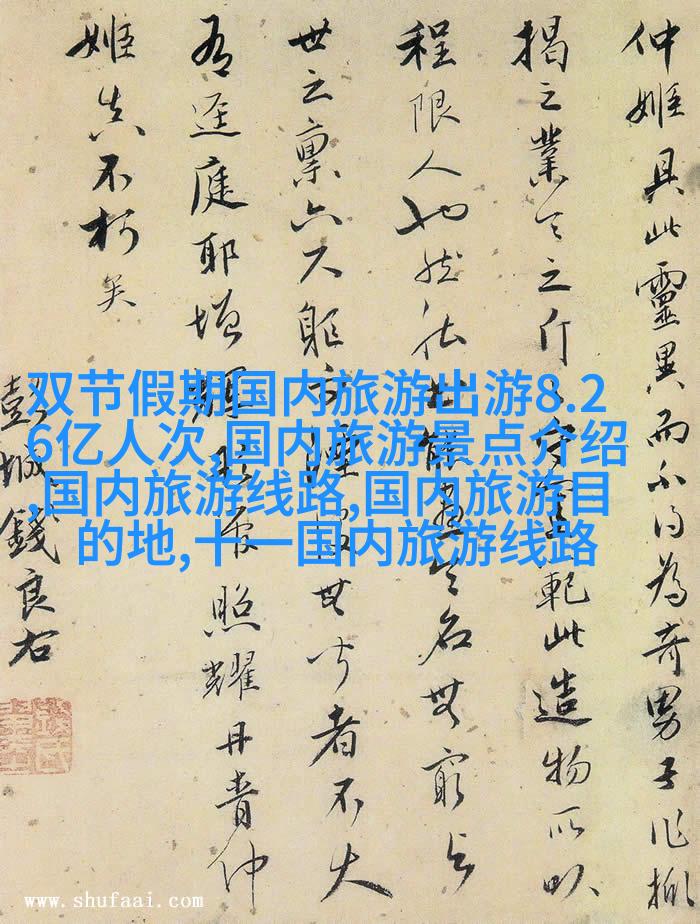 仲姬具此靈異而不得為奇男子作掀
揭之業之守範此造物所以
程限人也然名無窮與
世之稟六尺軀無聞者不大
有逕庭耶增輝照耀丹青仲
姬真不朽矣
彭城錢良右
双节假期国内旅游出游8.2
6亿人次,国内旅游景点介绍
,国内旅游线路,国内旅游目
的地,十一国内旅游线路
www.shufaai.com